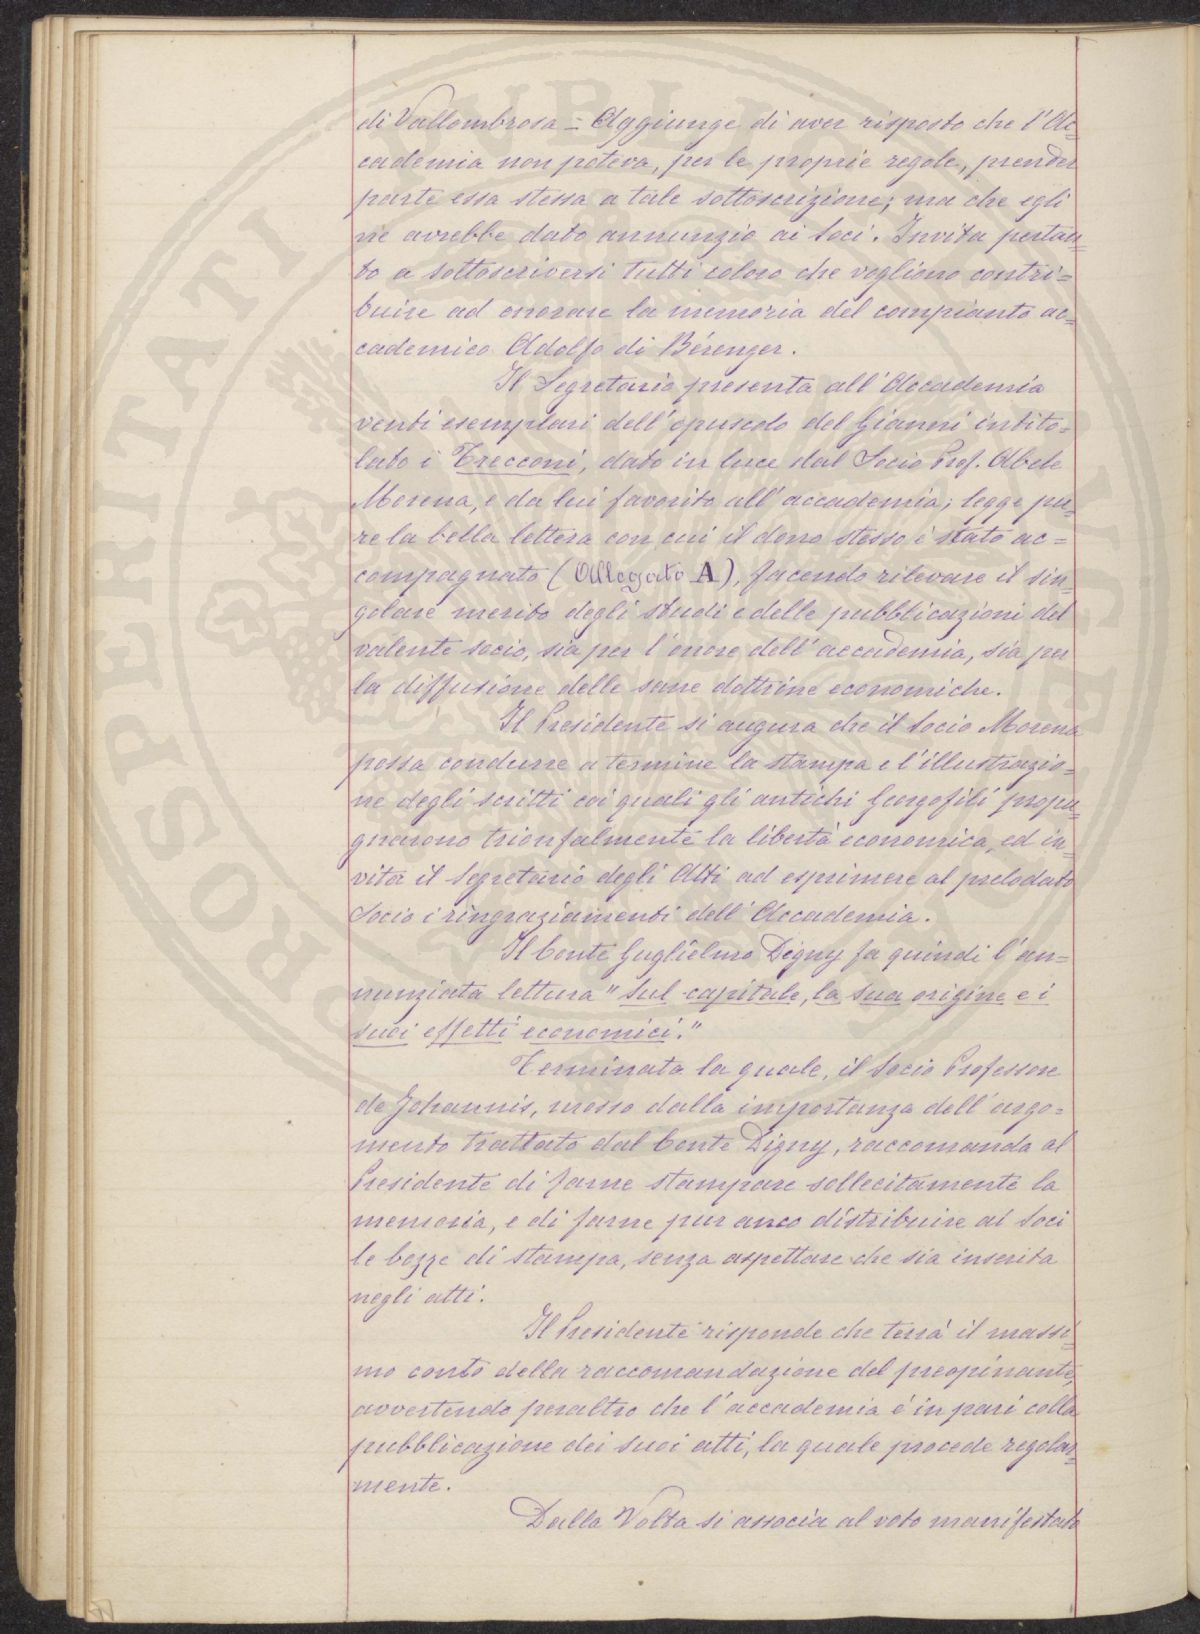 di Vallombrosa = Aggiunge di aver risposto che l'Ac=
cademia non poteva, per le proprie regole, prender
parte essa stessa a tale sottoscrizione; ma che egli
ne avrebbe dato annunzio ai Soci. Invita pertan=
to a sottoscriversi tutti coloro che vogliono contri=
buire ad onorare la memoria del compianto ac=
cademico Adolfo di Bérenger.
Il Segretario presenta all'Accademia
venti esemplari dell'opuscolo del Gianni intito=
lato i Trecconi, dato in luce dal Socio Prof. Abele
Morena, e da lui favorito all'accademia; legge pu=
re la bella lettera con cui il dono stesso è stato ac=
compagnato (Allegato A), facendo rilevare il sin=
golare merito degli studi e delle pubblicazioni del
valente socio, sia per l'onore dell'accademia, sia per
la diffusione delle sane dottrine economiche.
Il Presidente si augura che il Socio Morena
possa condurre a termine la stampa e l'illustrazio=
ne degli scritti coi quali gli antichi Georgofili propu=
gnarono trionfalmente la libertà economica, ed in=
vita il Segretario degli Atti ad esprimere al prelodato
Socio i ringraziamenti dell'Accademia.
Il Conte Guglielmo Digny fa quindi l'an=
nunziata lettura "Sul capitale, la sua origine e i
suoi effetti economici."
Terminata la quale, il Socio Professore
de Johannis, mosso dalla importanza dell'argo=
mento trattato dal Conte Digny, raccomanda al
Presidente di farne stampare sollecitamente la
memoria, e di farne pur anco distribuire ai Soci
le bozze di stampa, senza aspettare che sia inserita
negli atti.
Il Presidente risponde che terrà il massi=
mo conto della raccomandazione del preopinante,
avvertendo peraltro che l'accademia è in pari colla
pubblicazione dei suoi atti, la quale procede regolar=
mente.
Dalla Volta si associa al voto manifestato
PROSPERITATI PUBLICAE AUGENDAE